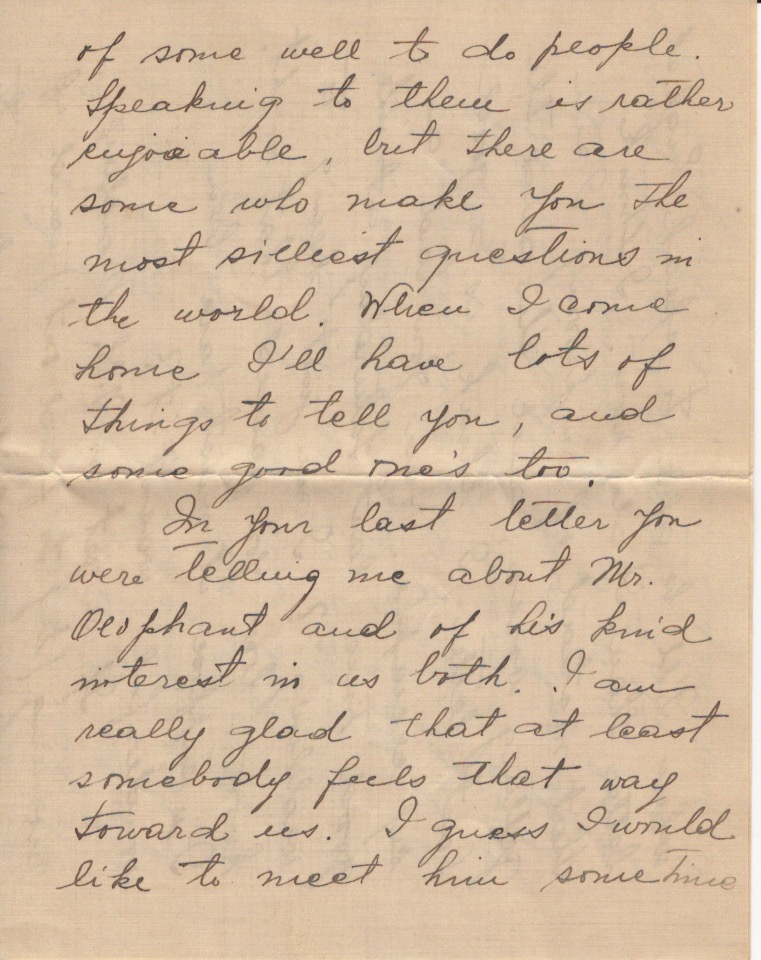 of some well to do people.
Speaking to them is rather
enjoiable, but there are
some who make you the
most silliest questions in
the world. When I come
home I'll have lots of
things to tell you, and
some good one's too.
In your last letter you
were telling me about Mr.
and of his kind
interest in us both. I am
really glad that at least
somebody feels that way
toward us. I guess I would
like to meet him sometime